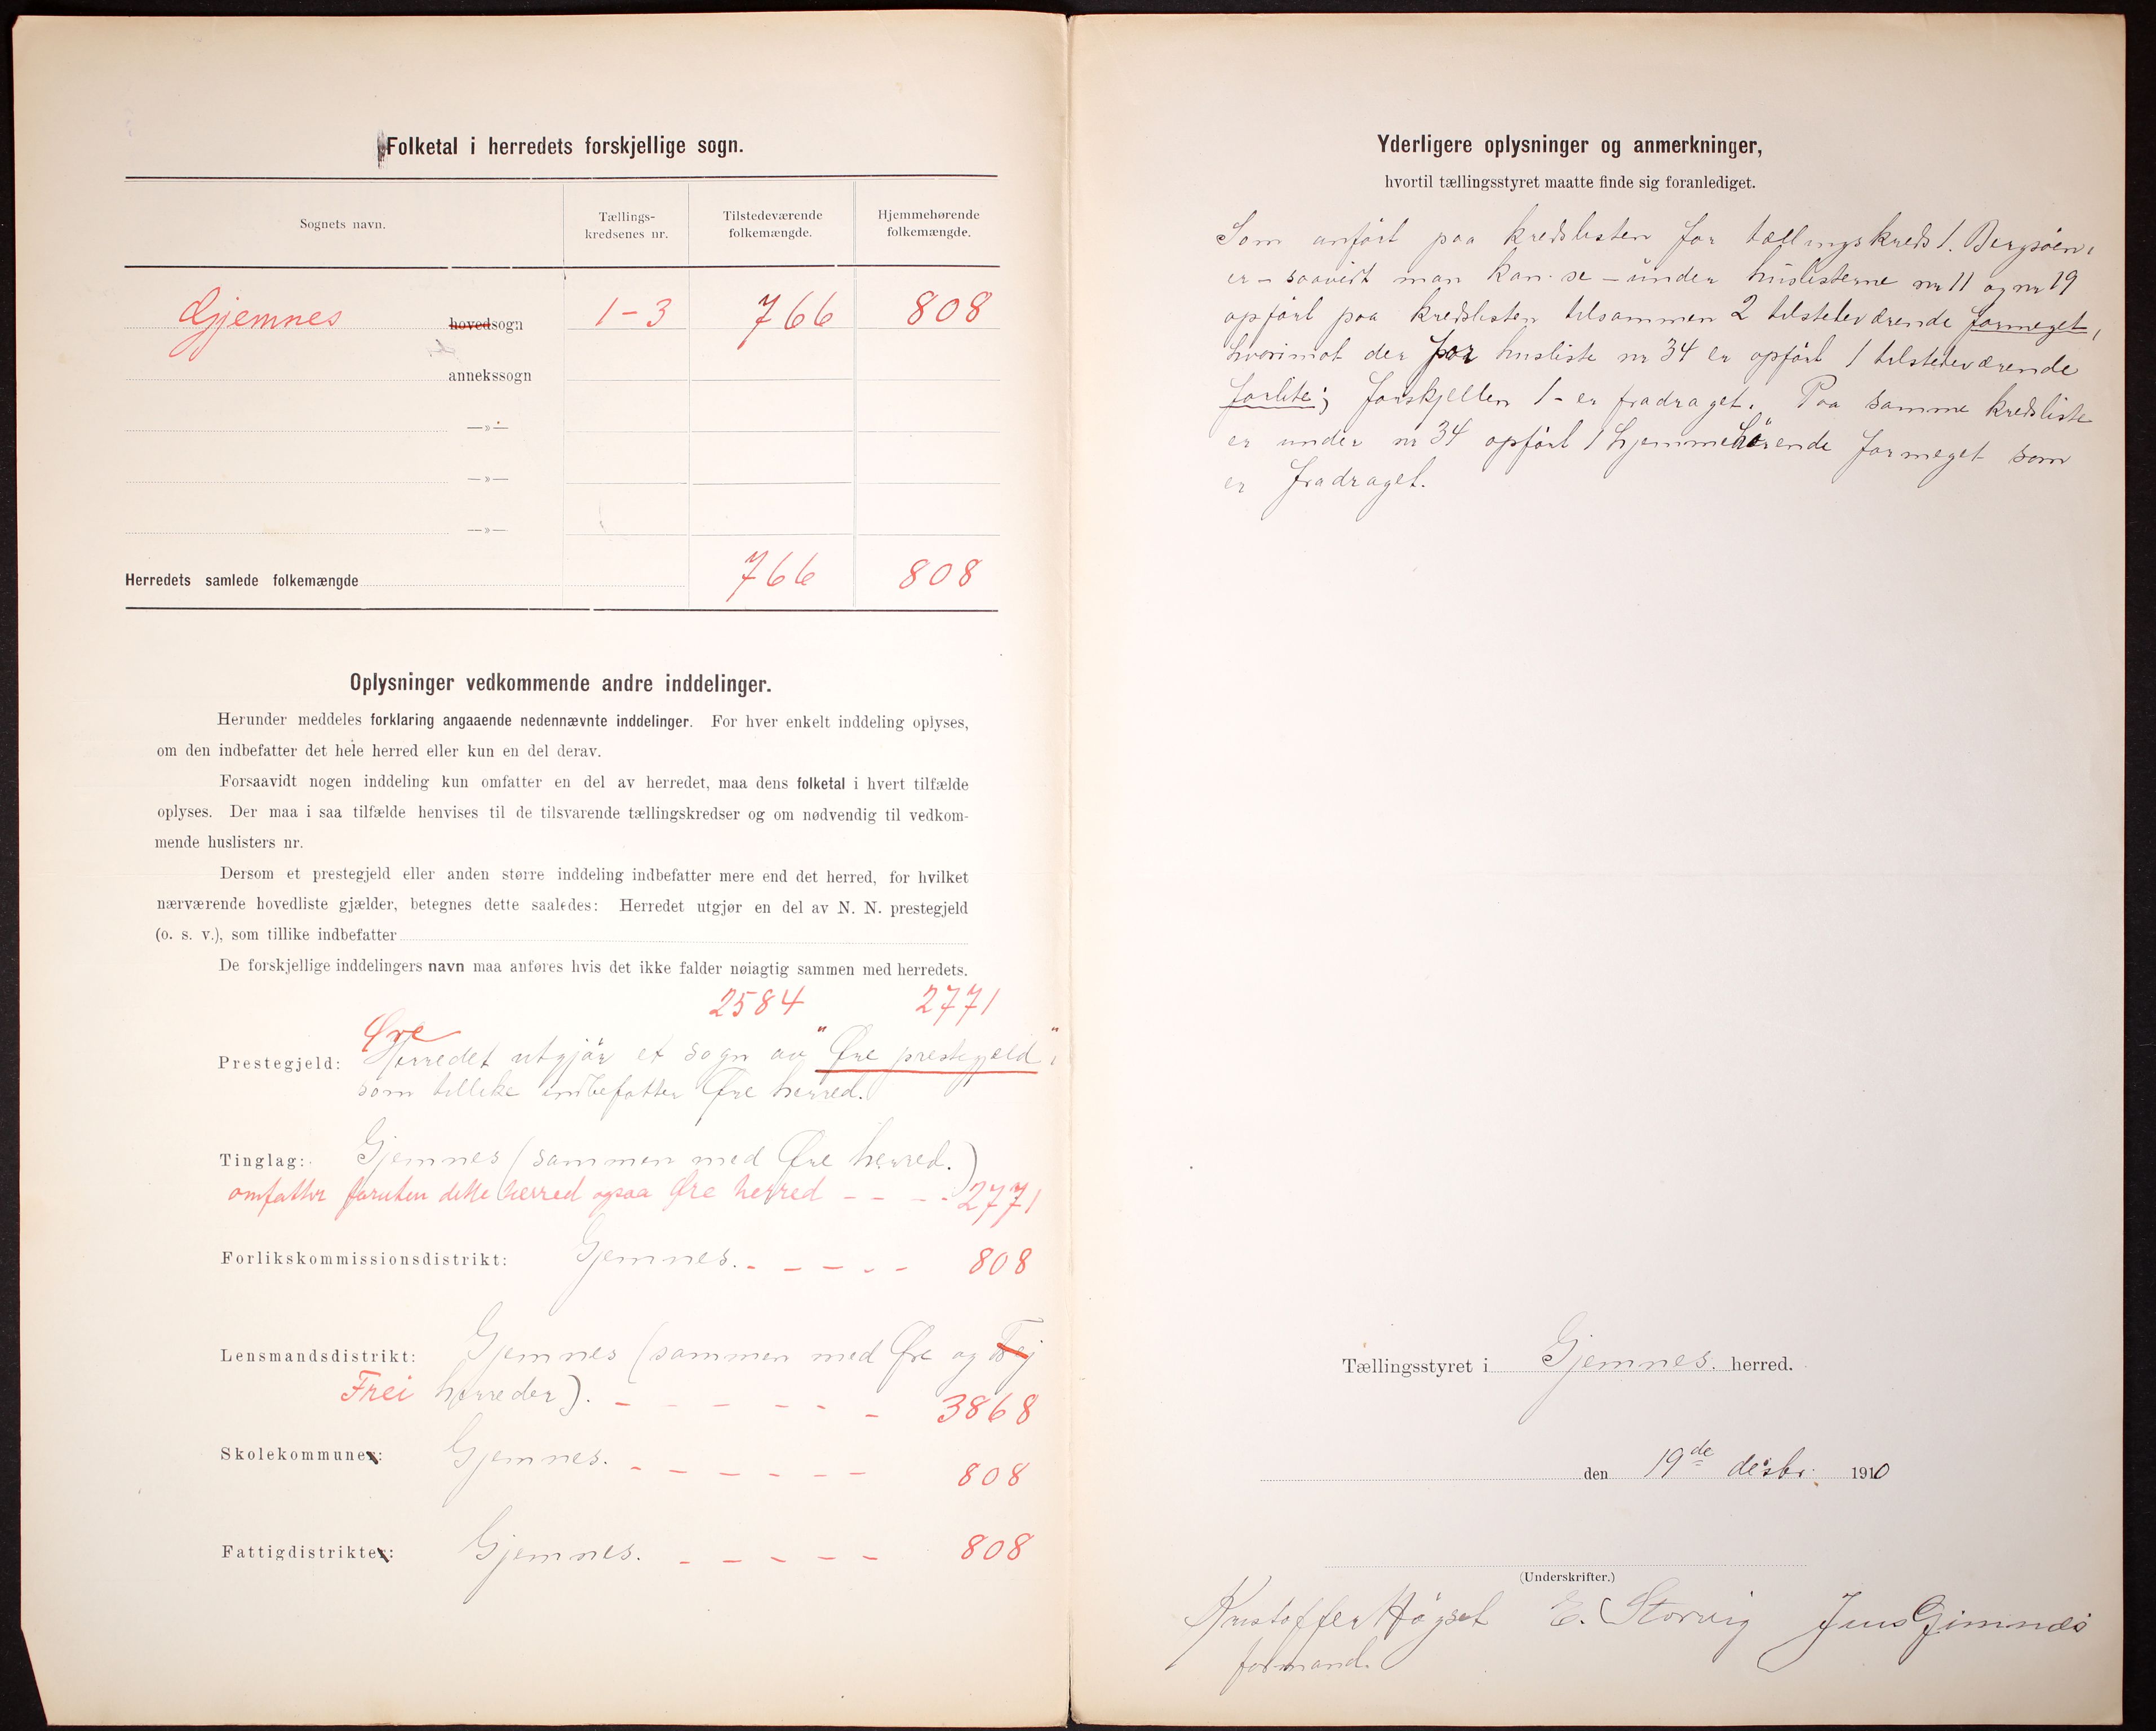 Folketal i herredets forskjellige sogn.
Sognets navn.
Tællings-
kredsenes nr.
Tilstedeværende
folkemængde.
Hjemmehørende
folkemængde.
Gjemnes hovedsogn 1-3 766 808
annekssogn
—»—
—»—
—»—
Herredets samlede folkemængde 766 808
Oplysninger vedkommende andre inddelinger.
Herunder meddeles forklaring angaaende nedennævnte inddelinger. For hver enkelt inddeling oplyses,
om den indbefatter det hele herred eller kun en del derav.
Forsaavidt nogen inddeling kun omfatter en del av herredet, maa dens folketal i hvert tilfælde
oplyses. Der maa i saa tilfælde henvises til de tilsvarende tællingskredser og om nødvendig til vedkom-
mende huslisters nr.
Dersom et prestegjeld eller anden større inddeling indbefatter mere end det herred, for hvilket
nærværende hovedliste gjælder, betegnes dette saaledes: Herredet utgjør en del av N. N. prestegjeld
(o. s. v.), som tillike indbefatter
De forskjellige inddelingers navn maa anføres hvis det ikke falder nøiagtig sammen med herredets.
2584 2771
Øre
Prestegjeld: Herredet utgjør et sogn av "Øre prestegjeld",
som tillike indbefatter Øre herred.
Tinglag: Gjemnes (sammen med Øre herred.)
omfatter foruten dette herred ogsaa Øre herred - - - - 2771
Forlikskommissionsdistrikt: Gjemnes. - - - - - 808
Lensmandsdistrikt: Gjemnes (sammen med Øre og Fej
Frei herreder). - - - - - - - 3868
Skolekommuner: Gjemnes. - - - - - - 808
Fattigdistrikter: Gjemnes. - - - - - 808
Yderligere oplysninger og anmerkninger,
hvortil tællingsstyret maatte finde sig foranlediget.
Som anført paa kredslisten for tællingskreds 1. Bergsøen,
er – saavidt man kan se – under huslisterne nr 11 og nr 19
opført paa kredslisten tilsammen 2 tilstedeværende formeget,
hvorimot der for husliste nr 34 er opført 1 tilstedeværende
forlite; forskjellen 1 - er fradraget. Paa samme kredsliste
er under nr 34 opført 1 "hjemmehørende" formeget som
er fradraget.
Tællingsstyret i Gjemnes. herred.
den 19de desbr. 1910
(Underskrifter.)
Kristoffer Høgset E. Storvig Jens Gjimnes
formand.